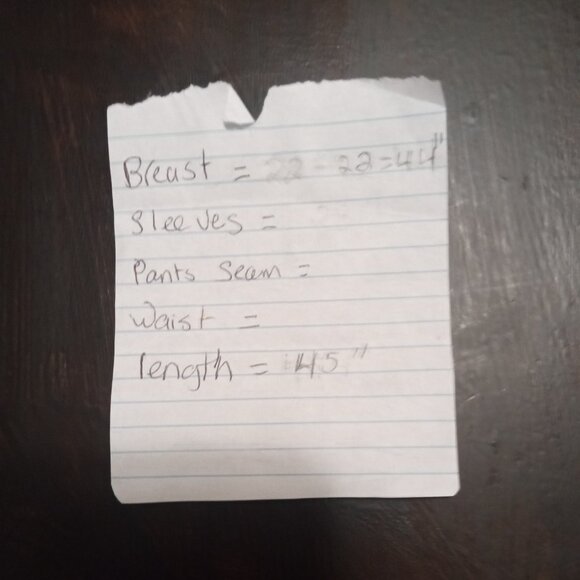 Breast = 22 - 22 = 44"
Sleeves =
Pants Seam =
Waist =
length = 45"